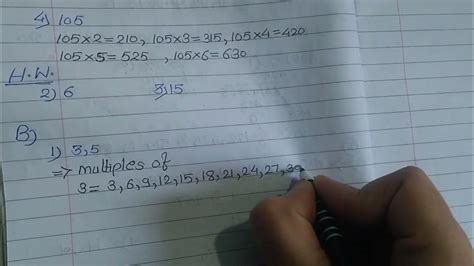 4) 105
105×2=210, 105×3=315, 105×4=420
105×5=525 , 105×6=630
H.W.
2) 6 3) 15
B)
1) 3,5
⇒ multiples of
3= 3,6,9,12,15,18,21,24,27,30